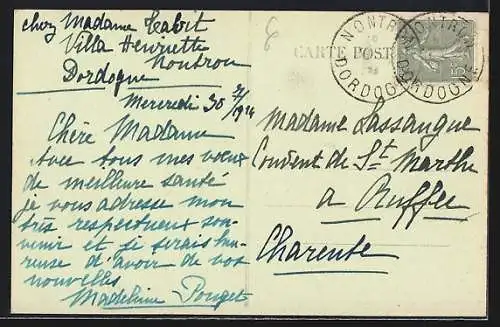 chez Madame
Villa Henriette
Nontron
Dordogne
Mercredi 30/7/1924
Chère Madame
Avec tous mes vœux
de meilleure santé
je vous adresse mon
très respectueux sou-
venir et je serais heu-
reuse d'avoir de vos
nouvelles
Madeleine Pouget
CARTE POSTALE
NONTRON
DORDOGNE
NONTRON
DORDOGNE
15
Madame Lassangue
Couvent de Ste Marthe
a Ruffec
Charente